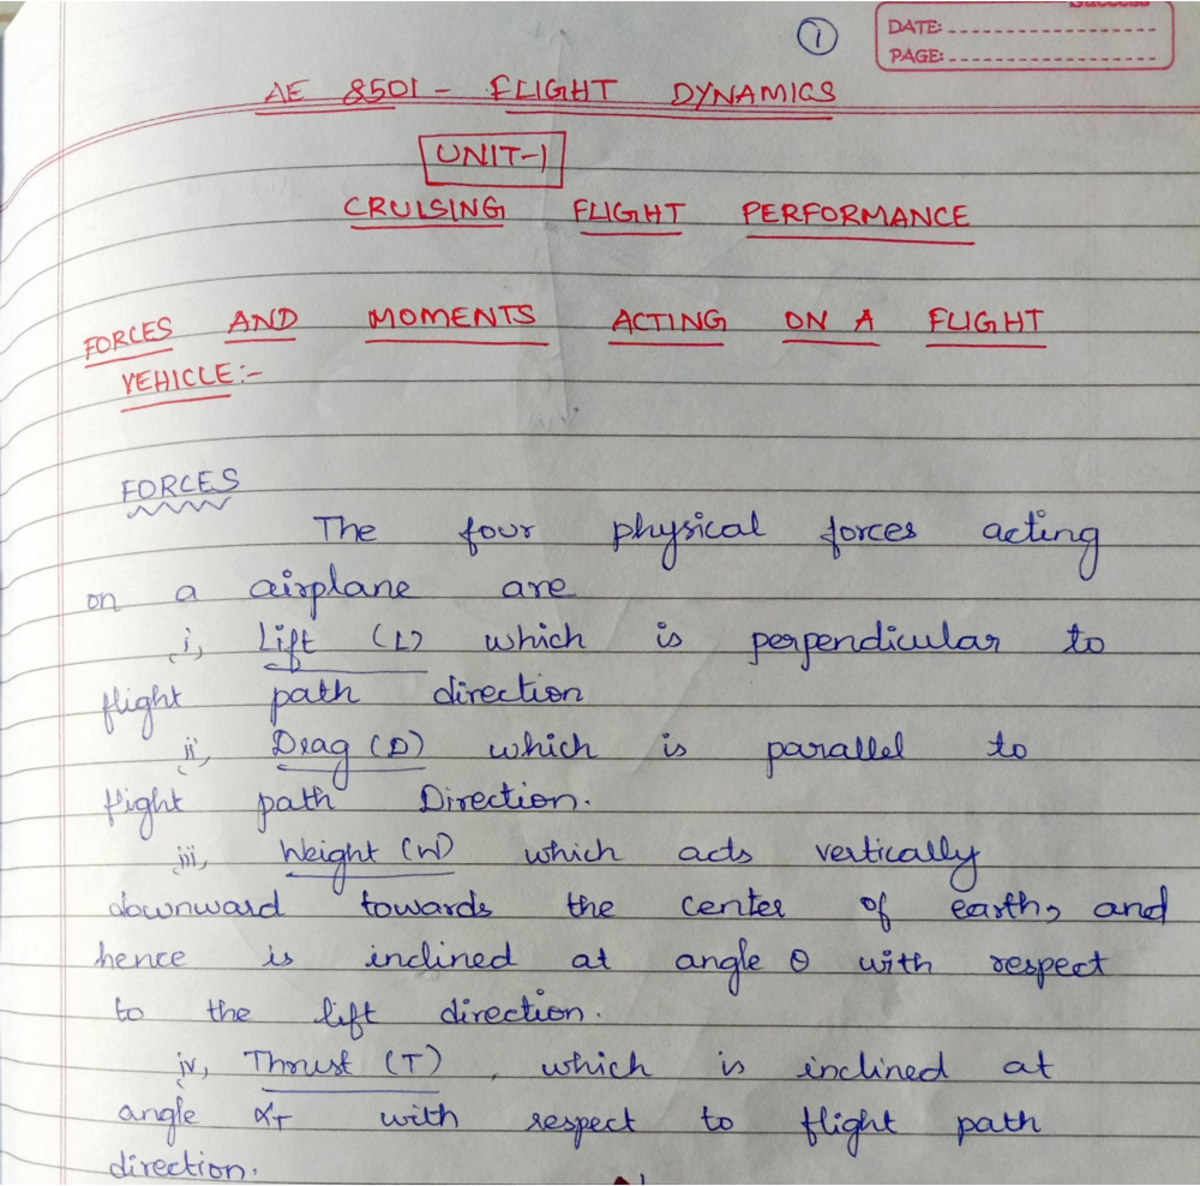 1
DATE:
PAGE:
AE 8501 - FLIGHT DYNAMICS
UNIT-1
CRUISING FLIGHT PERFORMANCE
FORCES AND MOMENTS ACTING ON A FLIGHT
VEHICLE:-
FORCES
The four physical forces acting
on a airplane are
i, Lift (L) which is perpendicular to
flight path direction
ii, Drag (D) which is parallel to
flight path Direction.
iii, Weight (W) which acts vertically
downward towards the center of earth, and
hence is inclined at angle θ with respect
to the lift direction.
iv, Thrust (T), which is inclined at
angle αT with respect to flight path
direction.